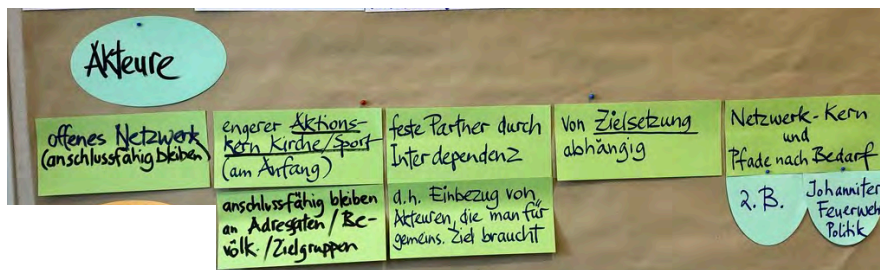 Akteure
offenes Netzwerk
(anschlussfähig bleiben)
engerer Aktions-
kern Kirche/Sport
(am Anfang)
anschlussfähig bleiben
an Adressaten/Be-
völk./Zielgruppen
feste Partner durch
Interdependenz
d.h. Einbezug von
Akteuren, die man für
gemeins. Ziel braucht
von Zielsetzung
abhängig
Netzwerk-Kern
und
Pfade nach Bedarf
z.B.
Johanniter
Feuerweh
Politik